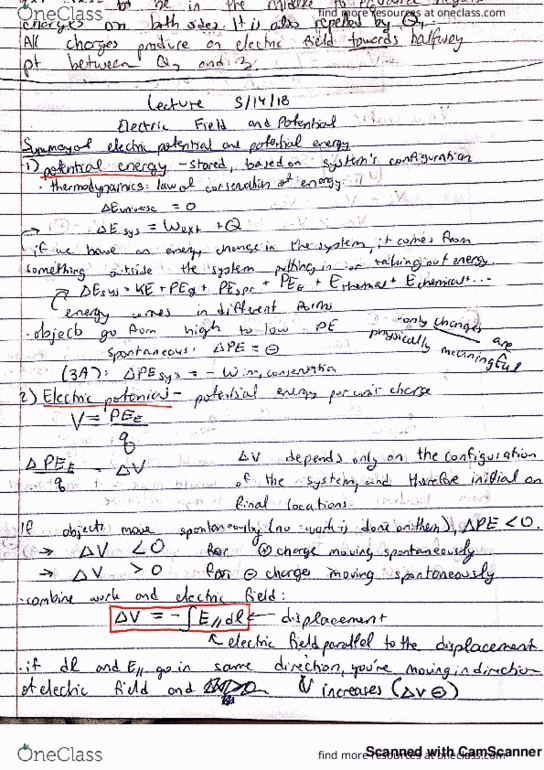 OneClass
find more resources at oneclass.com
to be in the middle to
charges on both sides. It is also repelled by Q
All charges produce an electric field towards halfway
pt between Q2 and 3.
Lecture 5/14/18
Electric Field and Potential
Summary of electric potential and potential energy
1) potential energy - stored, based on system's configuration
· thermodynamics: law of conservation of energy
ΔEuniverse = 0
→ ΔEsys = Wext + Q
if we have an energy change in the system, it comes from
something outside the system putting in or taking out energy.
ΔEsys = KE + PEg + PEspr + PEE + Ethermal + Echemical + ...
energy comes in different forms
· objects go from high to low PE
- only changes are
physically meaningful
spontaneous: ΔPE = ⊖
(3A): ΔPEsys = - W
2) Electric potential - potential energy per unit charge
V = PEE / q
ΔPEE / q = ΔV
ΔV depends only on the configuration
of the system, and therefore initial and
final locations.
If objects move spontaneously (no work is done on them), ΔPE < 0.
→ ΔV < 0 for ⊕ charge moving spontaneously
→ ΔV > 0 for ⊖ charge moving spontaneously
· combine work and electric field:
ΔV = - ∫ E∥ dl ← displacement
↖ electric field parallel to the displacement
· if dl and E∥ go in same direction, you're moving in direction
of electric field and V increases (ΔV ⊖)
OneClass
find more resources at oneclass.com
Scanned with CamScanner